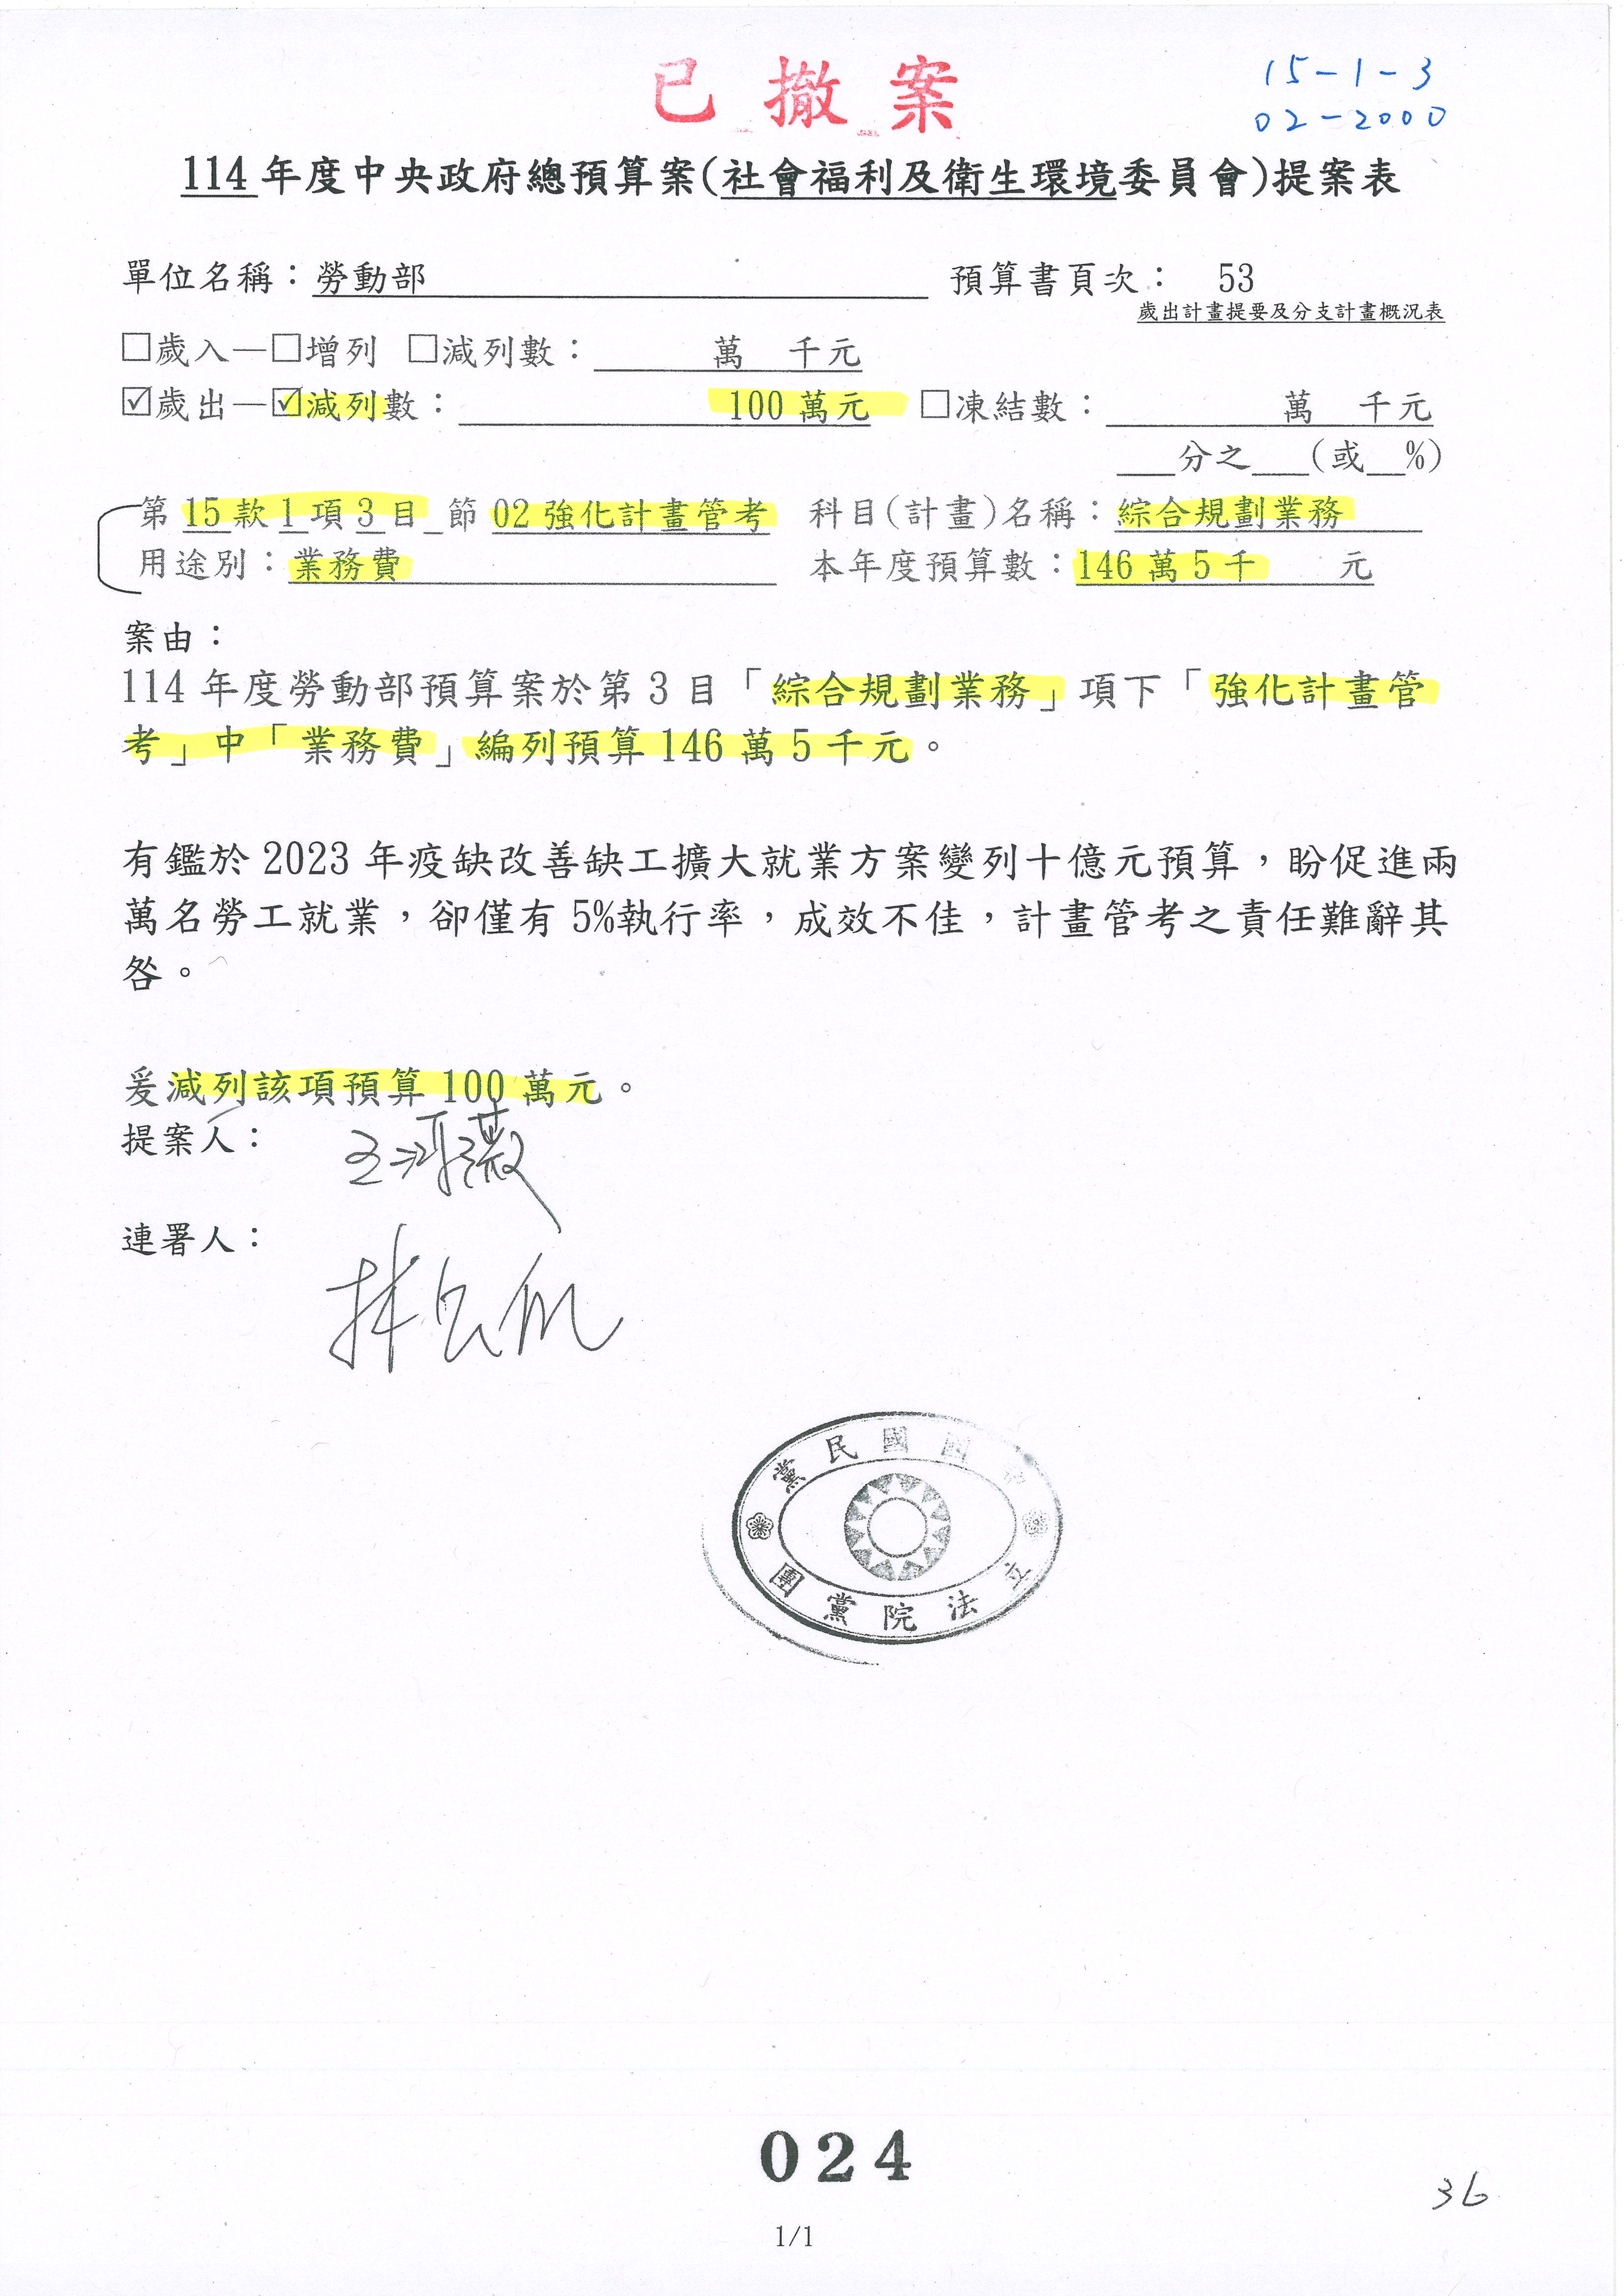 已撤案
15-1-3
02-2000
114年度中央政府總預算案(社會福利及衛生環境委員會)提案表
單位名稱：勞動部 預算書頁次： 53
歲出計畫提要及分支計畫概況表
□歲入—□增列 □減列數： 萬 千元
☑歲出—☑減列數： 100萬元 □凍結數： 萬 千元
___分之___(或__%)
第15款1項3目_節02強化計畫管考 科目(計畫)名稱：綜合規劃業務
用途別：業務費 本年度預算數：146萬5千 元
案由：
114年度勞動部預算案於第3目「綜合規劃業務」項下「強化計畫管
考」中「業務費」編列預算146萬5千元。
有鑑於2023年疫缺改善缺工擴大就業方案變列十億元預算，盼促進兩
萬名勞工就業，卻僅有5%執行率，成效不佳，計畫管考之責任難辭其
咎。
爰減列該項預算100萬元。
提案人： 王鴻薇
連署人：
黨民國國
立法院黨團
024
36
1/1